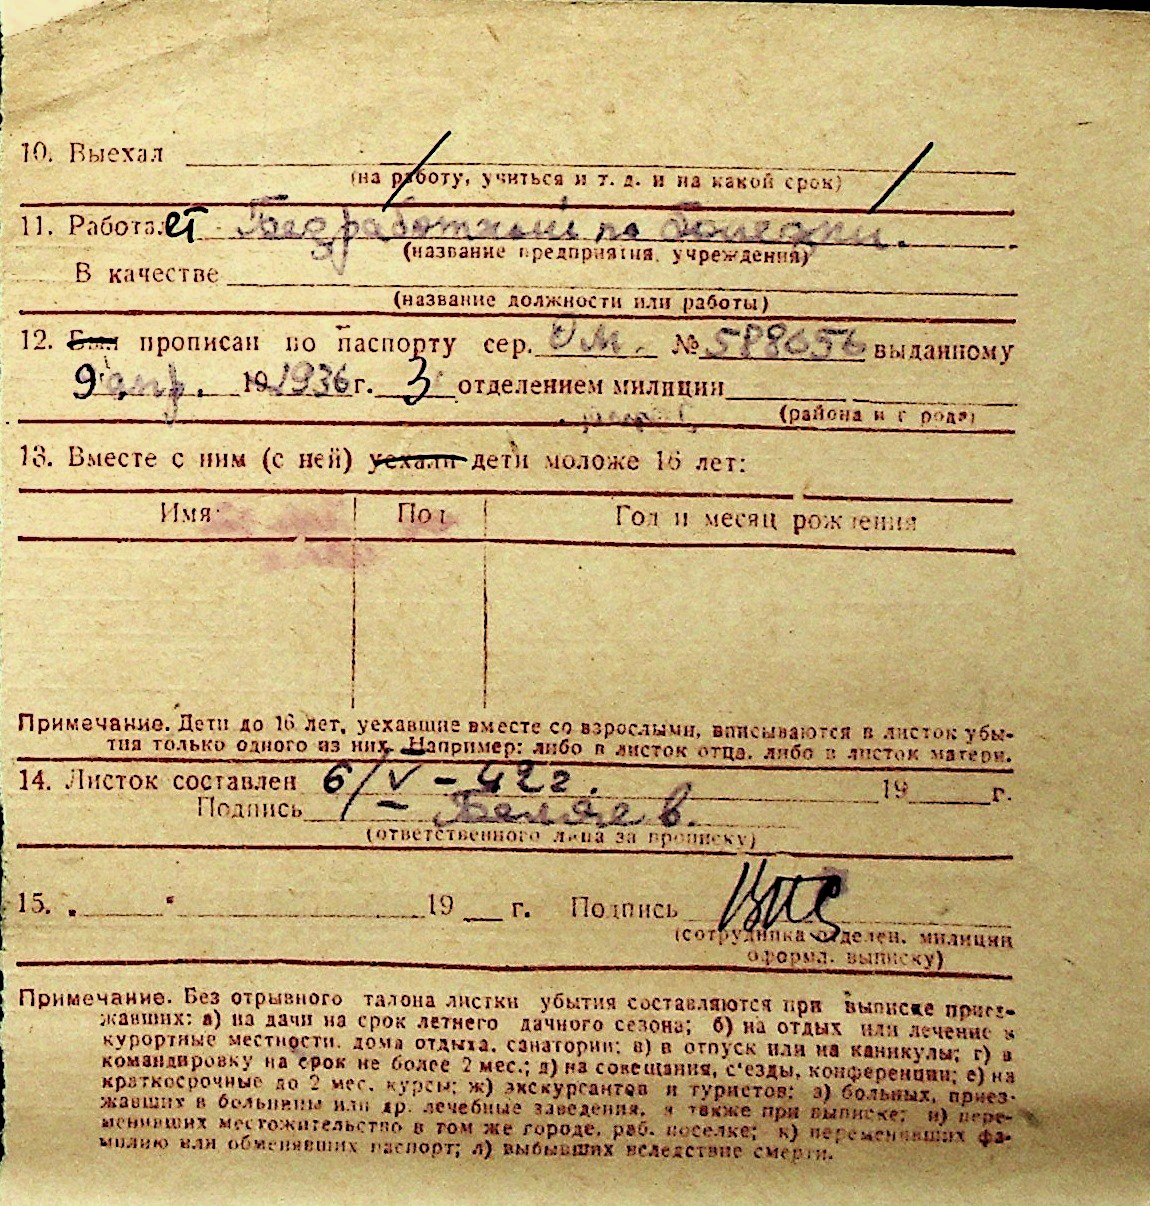 10. Выехал
(на работу, учиться и т. д. и на какой срок)
11. Работает Безработный по болезни.
(название предприятия, учреждения)
В качестве
(название должности или работы)
12. Был прописан по паспорту сер. ОМ. № 588656 выданному
9 апр. 19 1936 г. 3 отделением милиции
(района и города)
13. Вместе с ним (с ней) уехали дети моложе 16 лет:
Имя Пол Год и месяц рождения
Примечание. Дети до 16 лет, уехавшие вместе со взрослыми, вписываются в листок убы-
тия только одного из них. Например: либо в листок отца, либо в листок матери.
14. Листок составлен 6/V – 42 г. 19 г.
Подпись Беляев.
(ответственного лица за прописку)
15. „ " 19 г. Подпись
(сотрудника отделен. милиции
оформл. выписку)
Примечание. Без отрывного талона листки убытия составляются при выписке приез-
жавших: а) на дачи на срок летнего дачного сезона; б) на отдых или лечение в
курортные местности, дома отдыха, санатории; в) в отпуск или на каникулы; г) в
командировку на срок не более 2 мес.; д) на совещания, с'езды, конференции; е) на
краткосрочные до 2 мес. курсы; ж) экскурсантов и туристов; з) больных, приез-
жавших в больницы или др. лечебные заведения, а также при выписке; и) пере-
менивших местожительство в том же городе, раб. поселке; к) переменивших фа-
милию или обменявших паспорт; л) выбывших вследствие смерти.